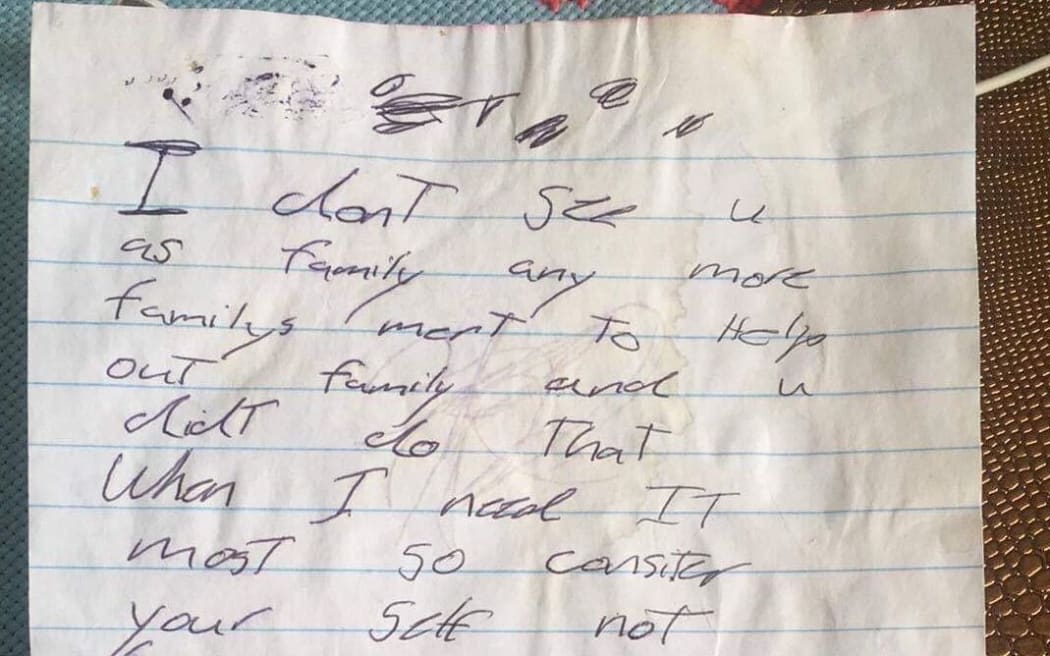 I dont see u
as family any more
familys ment to Help
out family and u
didt do That
When I need IT
most so consiter
your self not